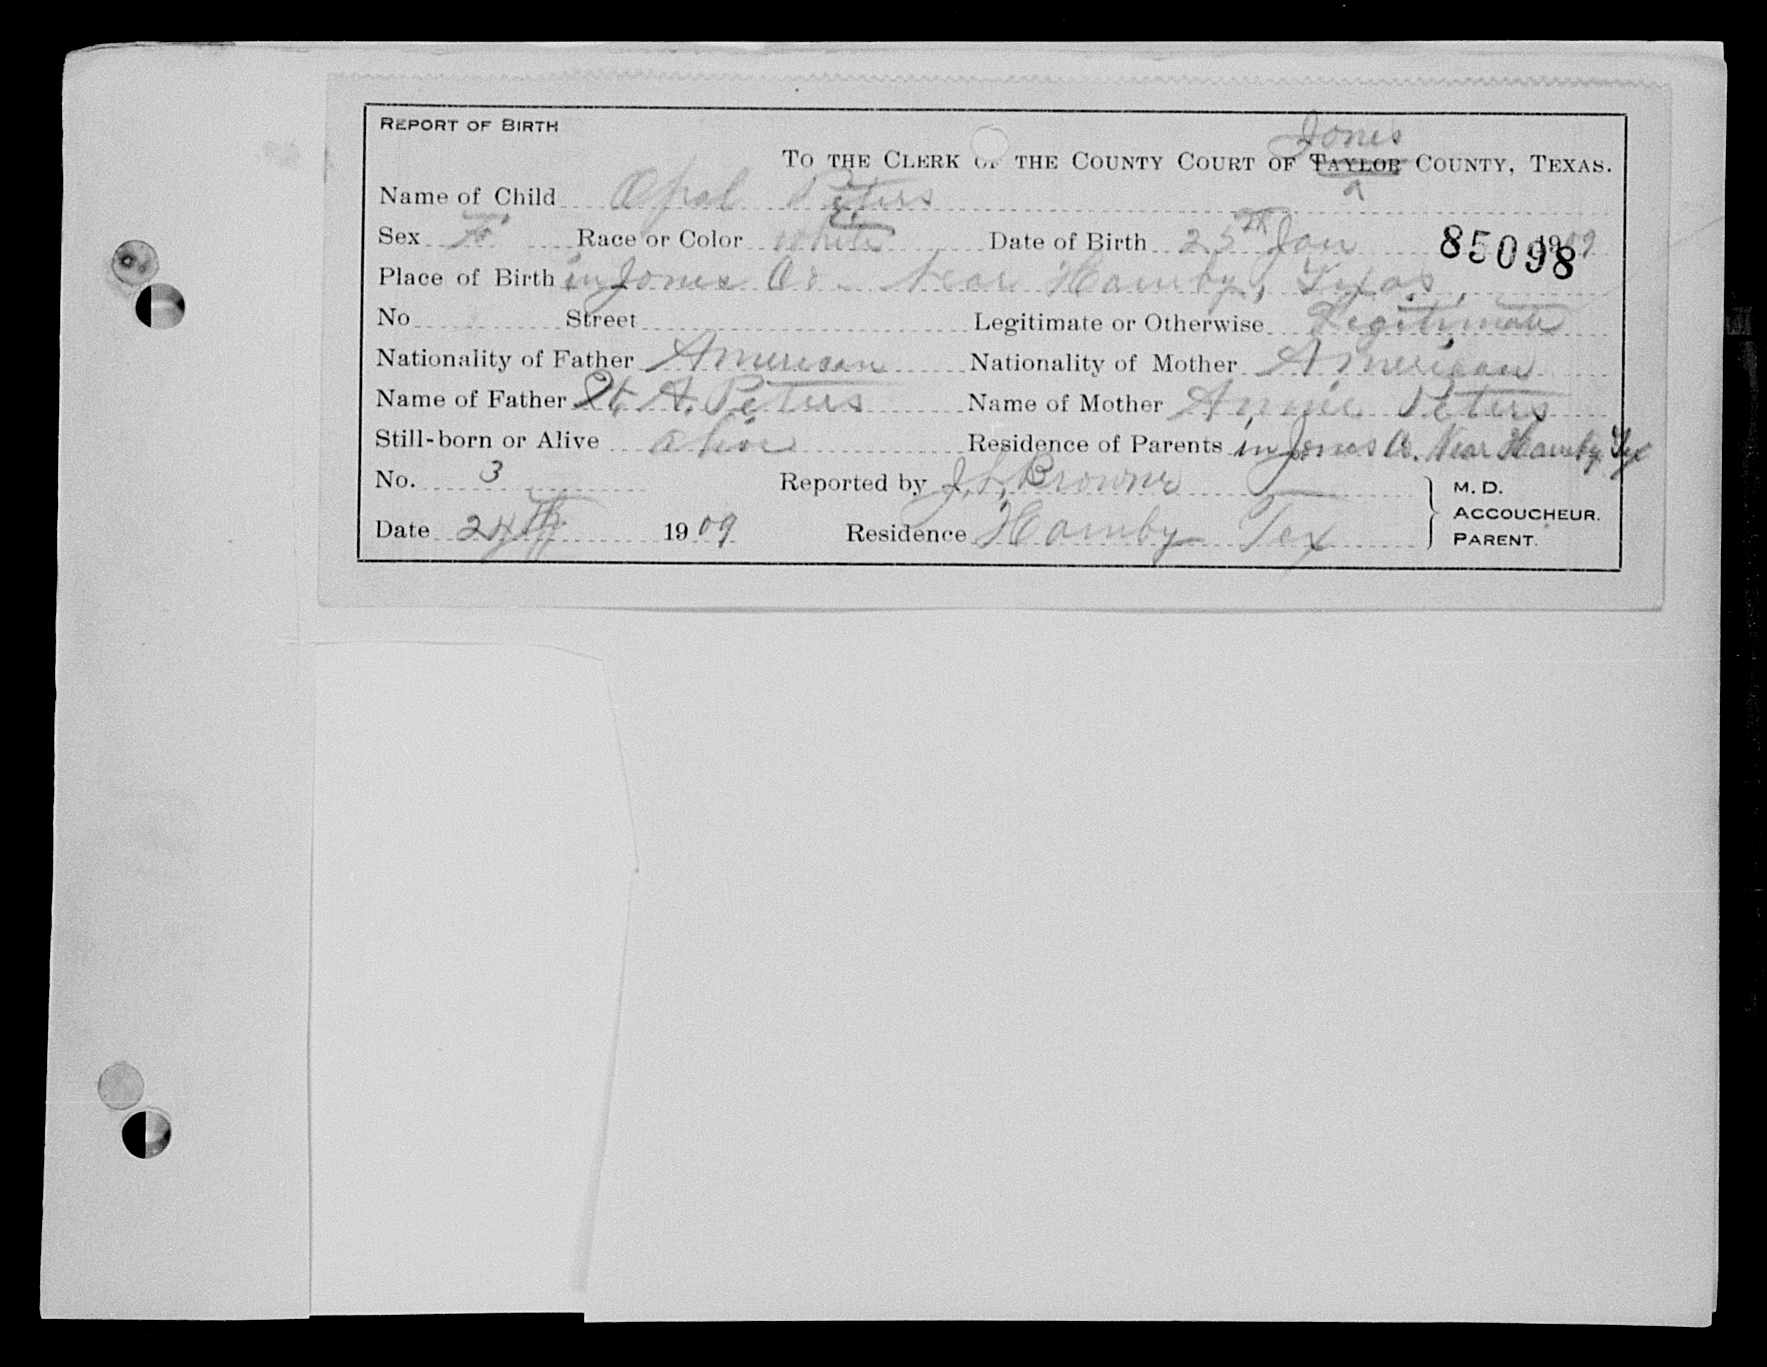 REPORT OF BIRTH
Jones
TO THE CLERK OF THE COUNTY COURT OF TAYLOR COUNTY, TEXAS.
Name of Child Opal Peters
Sex F. Race or Color White Date of Birth 25th Jan 1909
85098
Place of Birth in Jones Co. Near Hamby, Texas.
No Street Legitimate or Otherwise Legitimate
Nationality of Father American Nationality of Mother American
Name of Father A. Peters Name of Mother Annie Peters
Still-born or Alive alive Residence of Parents in Jones Co. Near Hamby Tex
No. 3 Reported by J. L. Browne M. D.
ACCOUCHEUR.
Date 24th 1909 Residence Hamby Tex PARENT.